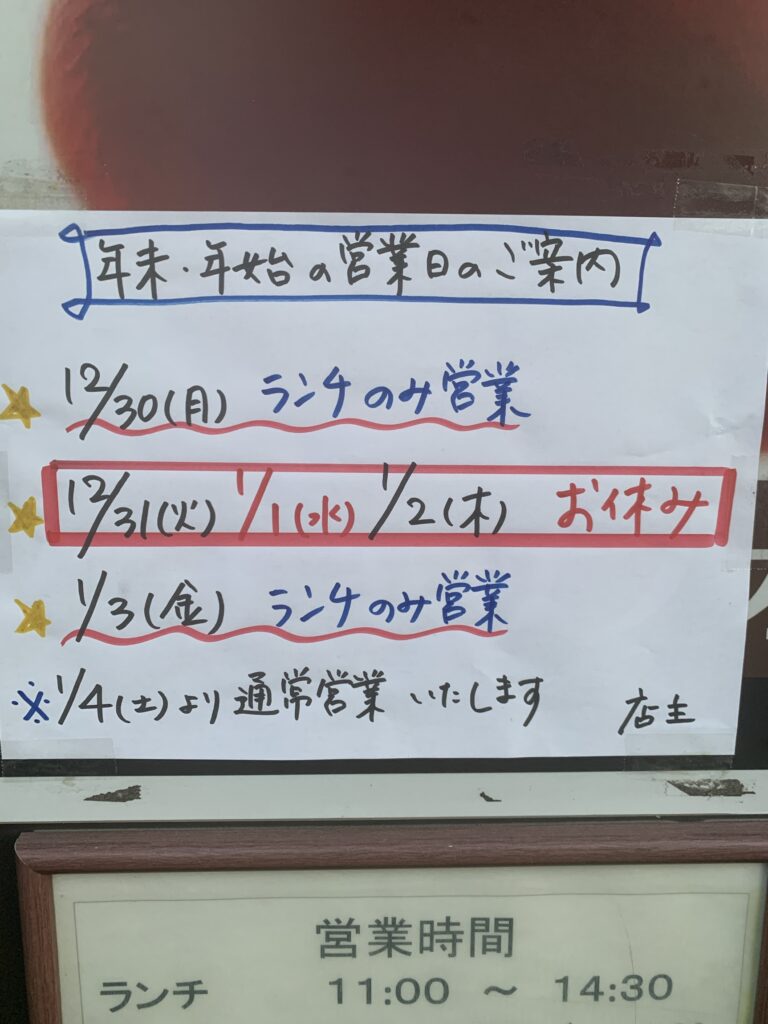 年末・年始の営業日のご案内
12/30(月) ランチのみ営業
12/31(火) 1/1(水) 1/2(木) お休み
1/3(金) ランチのみ営業
※1/4(土)より通常営業いたします 店主
営業時間
ランチ 11:00 ～ 14:30